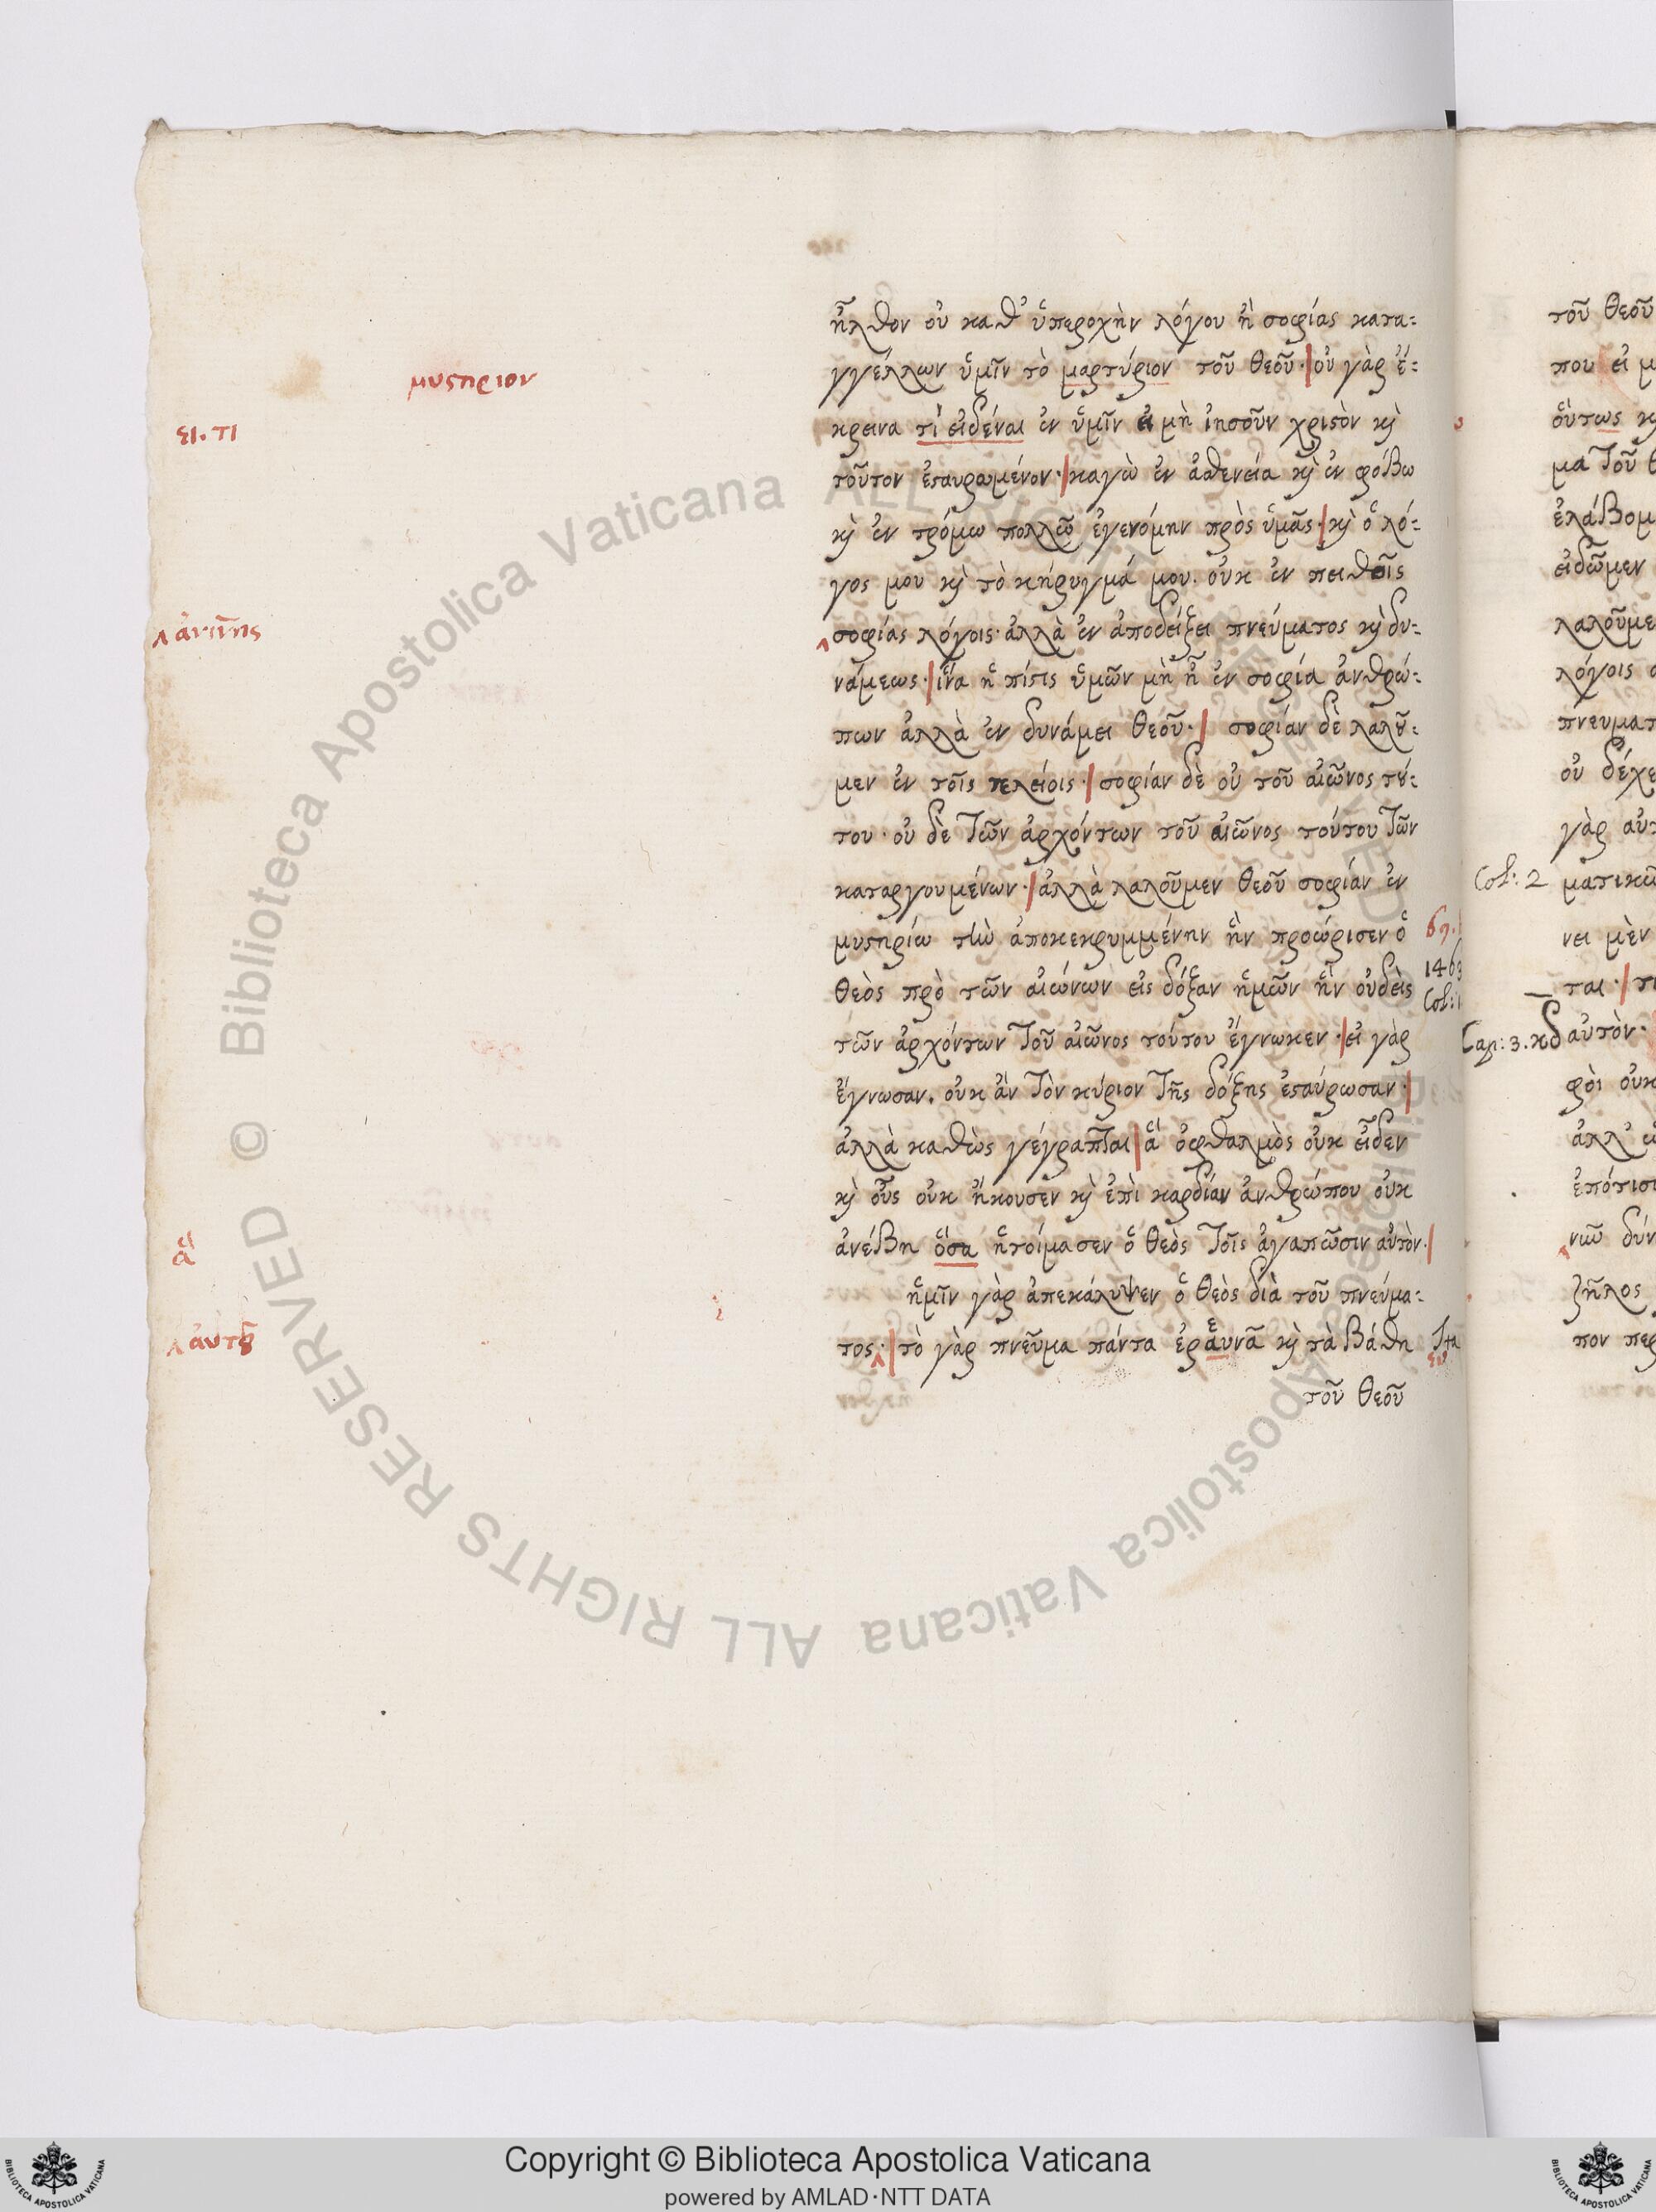 ἦλθον οὐ καθ' ὑπεροχὴν λόγου ἢ σοφίας κατα:
μυςηριον
γγέλλων ὑμῖν τὸ μαρτύριον τοῦ θεοῦ· οὐ γὰρ ἔ:
ει. τι
κρεινα τὶ εἰδέναι ἐν ὑμῖν εἰ μὴ ἰησοῦν χριστὸν κὶ
τοῦτον ἐςαυρωμένον· καγὼ ἐν ἀσθενεία κὶ ἐν φόβω
κὶ ἐν τρόμω πολλῶ ἐγενόμην πρὸς ὑμᾶς· κὶ ὁ λό:
γος μου κὶ τὸ κήρυγμά μου. οὐκ ἐν πειθοῖς
σοφίας λόγοις· ἀλλὰ ἐν ἀποδείξει πνεύματος κὶ δυ:
νάμεως· ἵνα ἡ πίςις ὑμῶν μὴ ἦ ἐν σοφία ἀνθρώ:
πων ἀλλὰ ἐν δυνάμει θεοῦ· σοφίαν δὲ λαλȣ͂:
μεν ἐν τοῖς τελείοις· σοφίαν δὲ οὐ τοῦ αἰῶνος τȣ́:
του· οὐ δὲ τῶν ἀρχόντων τοῦ αἰῶνος τούτου τῶν
καταργουμένων· ἀλλὰ λαλοῦμεν θεοῦ σοφίαν ἐν
μυςηρίω τὴν ἀποκεκρυμμένην ἣν προώρισεν ὁ
θεὸς πρὸ τῶν αἰώνων εἰς δόξαν ἡμῶν ἣν οὐδεὶς
146
Col:
τῶν ἀρχόντων τοῦ αἰῶνος τούτου ἔγνωκεν· εἰ γὰρ
ἔγνωσαν. οὐκ ἂν τὸν κύριον τῆς δόξης ἐςαύρωσαν·
ἀλλὰ καθὼς γέγραπται ἃ ὀφθαλμὸς οὐκ εἶδεν
κὶ οὖς οὐκ ἤκουσεν κὶ ἐπὶ καρδίαν ἀνθρώπου οὐκ
ἃ
ἀνέβη ὅσα ἡτοίμασεν ὁ θεὸς τοῖς ἀγαπῶσιν αὐτὸν·
ἡμῖν γὰρ ἀπεκάλυψεν ὁ θεὸς διὰ τοῦ πνεύμα:
αὐτȣ͂
τος· τὸ γὰρ πνεῦμα πάντα ἐραυνᾶ κὶ τὰ βάθη
Ita
τοῦ θεοῦ
τοῦ θεοῦ
που εἰ μ
οὕτως κ
μα τοῦ θ
ἐλάβομ
εἰδῶμεν
λαλοῦμε
λόγοις
πνευματ
οὐ δέχε
γὰρ αὐτ
Col: 2 ματικῶ
νει μὲν
ται·
Cap: 3. κδ αὐτὸν·
φοὶ οὐκ
ἀλλ' ὡ
ἐπότισ
νῶ δύν
ζῆλος
πον περ
Copyright © Biblioteca Apostolica Vaticana
powered by AMLAD·NTT DATA
© Biblioteca Apostolica Vaticana ALL RIGHTS RESERVED
© Biblioteca Apostolica Vaticana ALL RIGHTS RESERVED
BIBLIOTECA APOSTOLICA VATICANA
BIBLIOTECA APOSTOLICA VATICANA